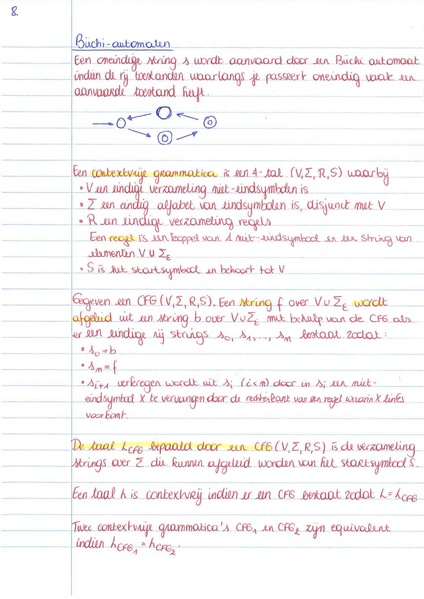 8.
Büchi-automaten
Een oneindige string s wordt aanvaard door een Büchi automaat
indien de rij toestanden waarlangs je passeert oneindig vaak een
aanvaarde toestand heeft.
Een contextvrije grammatica is een 4-tal (V,Σ,R,S) waarbij
• V een eindige verzameling niet-eindsymbolen is
• Σ een eindig alfabet van eindsymbolen is, disjunct met V
• R een eindige verzameling regels
Een regel is een koppel van 1 niet-eindsymbool en een string van
elementen V ∪ Σε
• S is het startsymbool en behoort tot V
Gegeven een CFG (V,Σ,R,S). Een string f over V∪Σε wordt
afgeleid uit een string b over V∪Σε met behulp van de CFG als
er een eindige rij strings s₀, s₁, ..., sₘ bestaat zodat:
• s₀=b
• sₘ=f
• sᵢ₊₁ verkregen wordt uit sᵢ (i<m) door in sᵢ een niet-
eindsymbool X te vervangen door de rechterkant van een regel waarin X links
voorkomt.
De taal L_CFG bepaald door een CFG (V,Σ,R,S) is de verzameling
strings over Σ die kunnen afgeleid worden van het startsymbool S.
Een taal L is contextvrij indien er een CFG bestaat zodat L=L_CFG
Twee contextvrije grammatica's CFG₁ en CFG₂ zijn equivalent
indien L_CFG₁ = L_CFG₂.